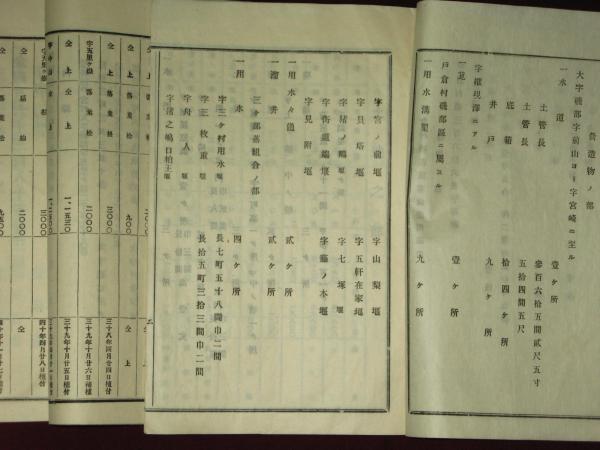 營造物ノ部
大字磯部字前山ヨリ字宮崎ニ至ル
一水道
土管長 參百六拾五間貳尺五寸
土管長 五拾四間五尺
底箱 拾四ケ所
井戸 九ケ所
字權現澤ニアル
一筧 壹ケ所
戸倉村磯部誕ニ屬スル
一用水溝 九ケ所
字宮ノ前堰
字山梨堰
字貝塔堰
字五軒在家堰
字猪ノ嶋堰
字七塚堰
字街道端堰
字藤ノ木堰
字見附堰
一用水々道 貳ケ所
一溜井 貳ケ所
三ケ部落組合ノ部
一用水 四ケ所
字二ケ村用水堰 長七町五十八間巾二間
字三枚重堰 長拾五町三拾三間巾二間
字舟人堰
字渚之嶋口柏王堰
仝上 落葉松 二〇〇〇
仝上 落葉松 九〇〇 仝上
仝上 落葉松 三〇〇〇 三十八年四月廿四日植付
字五里ケ嶽 落葉松 二〇〇〇 三十九年十月廿六日補植
仝上 仝上 一、一五三〇 三十九年十月廿五日植付
三〇〇〇 四十年四月廿八日植付
二〇〇〇 仝